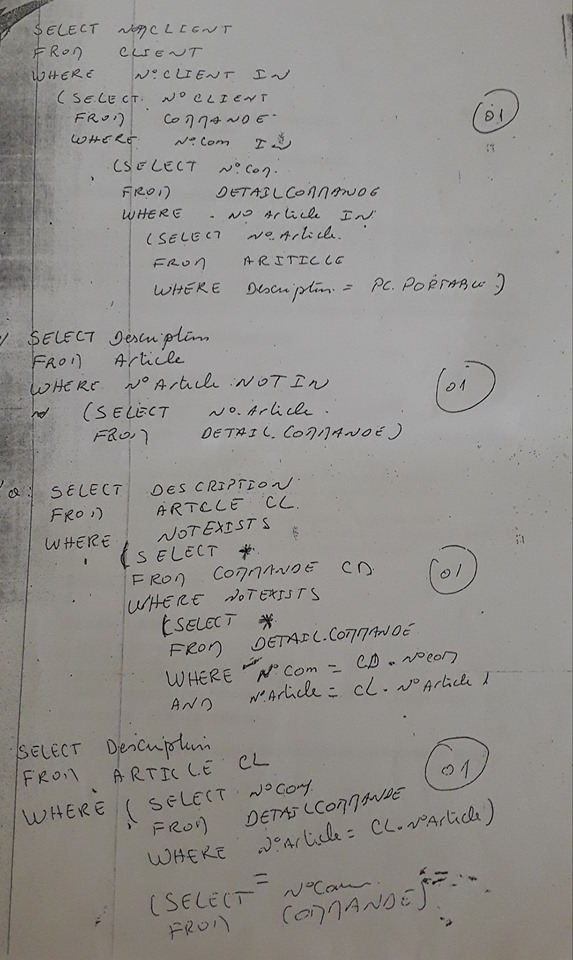 SELECT NOM CLIENT
FROM CLIENT
WHERE N°CLIENT IN
(SELECT N°CLIENT
FROM COMMANDE
WHERE N°Com IN
(SELECT N°Com.
FROM DETAILCOMMANDE
WHERE N° Article IN
(SELECT No.Article.
FROM ARITICLE
WHERE Description = PC.PORTABLE)
01
SELECT Description
FROM Article
WHERE N°Article NOT IN
(SELECT No.Article.
FROM DETAIL.COMMANDE)
01
SELECT DESCRIPTION
FROM ARTCLE CL.
WHERE NOTEXISTS
(SELECT *
FROM COMMANDE CD
WHERE NOTEXISTS
(SELECT *
FROM DETAIL.COMMANDE
WHERE N°Com = CD.N°COM
AND N°Article = CL.N°Article
01
SELECT Description
FROM ARTICLE CL
WHERE (SELECT N°COM.
FROM DETAILCOMMANDE
WHERE N°Article = CL.N°Article)
=
(SELECT N°Com
FROM COMMANDE)
01